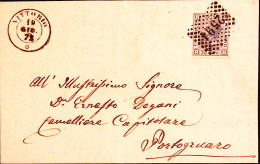 VITTORIO
19
GIU.
74
All' Illustrissimo Signore
Dr Ernesto Degani
Cancelliere Capitolare
Portogruaro